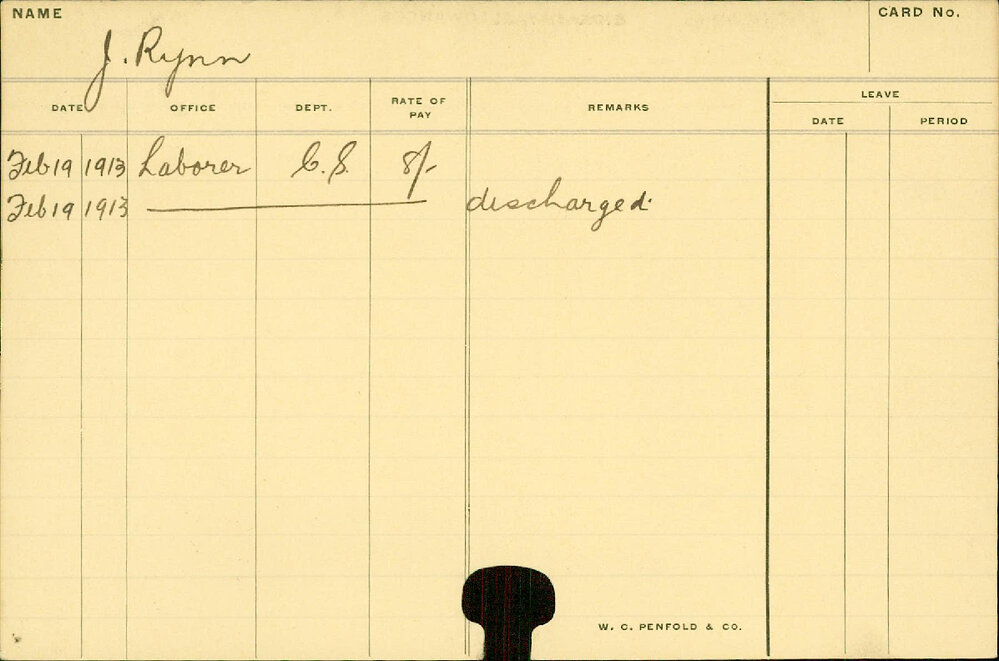 NAME
CARD No.
J. Rynn
DATE OFFICE DEPT. RATE OF PAY REMARKS LEAVE
DATE PERIOD
Feb 19 1913 Laborer C.S. 8/-
Feb 19 1913 discharged.
W. C. PENFOLD & CO.